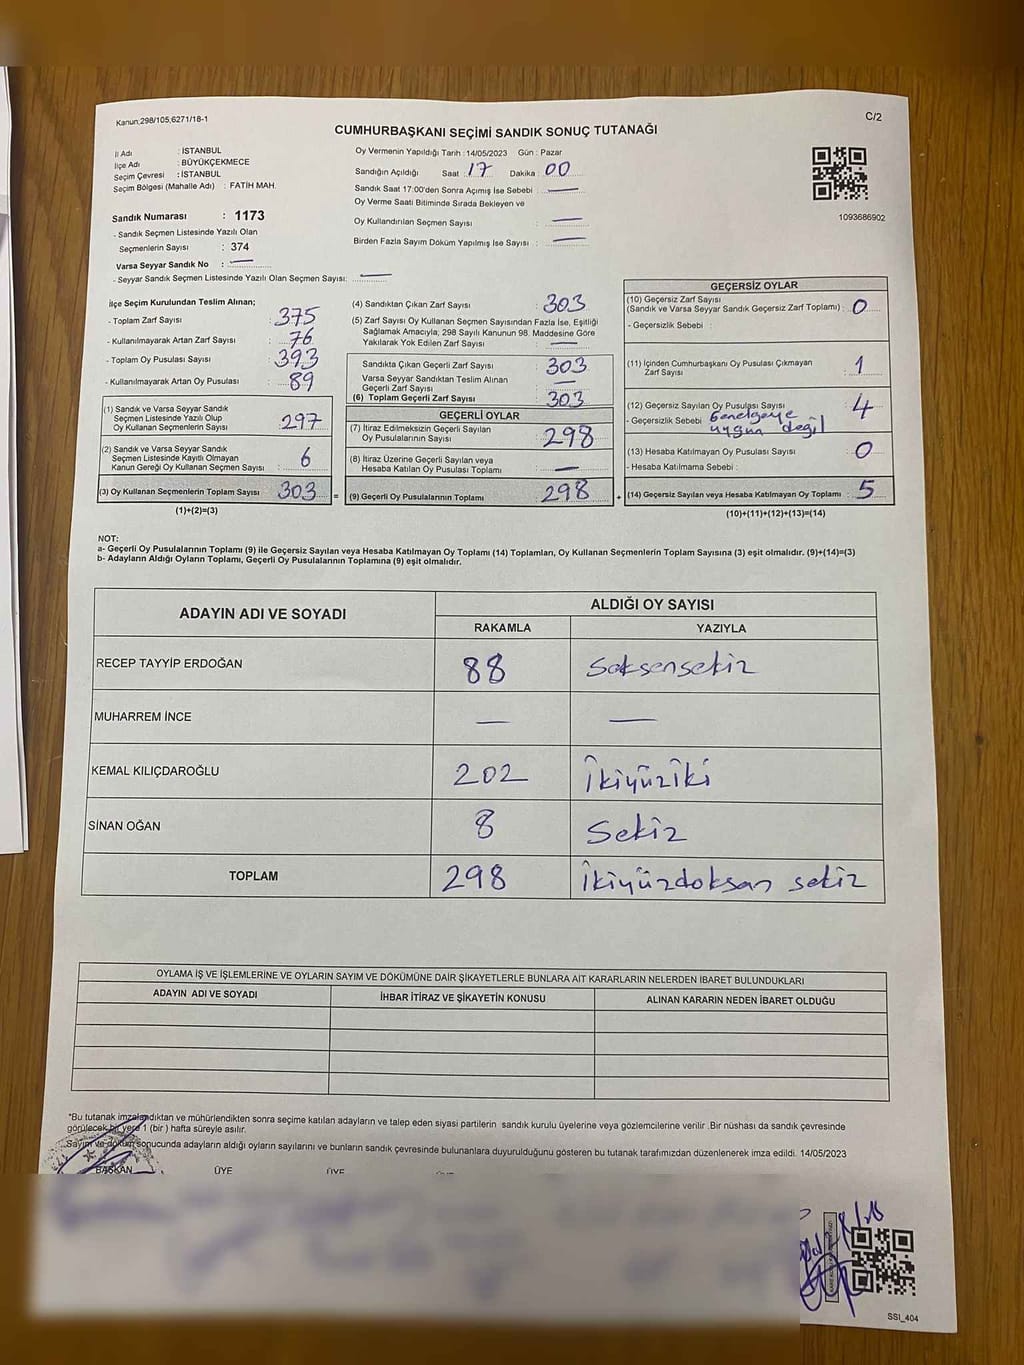 Kanun;298/105,6271/18-1
C/2
CUMHURBAŞKANI SEÇİMİ SANDIK SONUÇ TUTANAĞI
İl Adı : İSTANBUL
İlçe Adı : BÜYÜKÇEKMECE
Seçim Çevresi : İSTANBUL
Seçim Bölgesi (Mahalle Adı) : FATİH MAH.
Sandık Numarası : 1173
- Sandık Seçmen Listesinde Yazılı Olan
Seçmenlerin Sayısı : 374
Varsa Seyyar Sandık No : —
- Seyyar Sandık Seçmen Listesinde Yazılı Olan Seçmen Sayısı: —
Oy Vermenin Yapıldığı Tarih :14/05/2023 Gün : Pazar
Sandığın Açıldığı Saat : 17 Dakika : 00
Sandık Saat 17:00'den Sonra Açımış İse Sebebi : —
Oy Verme Saati Bitiminde Sırada Bekleyen ve
Oy Kullandırılan Seçmen Sayısı : —
Birden Fazla Sayım Döküm Yapılmış İse Sayısı : —
1093686902
İlçe Seçim Kurulundan Teslim Alınan;
- Toplam Zarf Sayısı : 375
- Kullanılmayarak Artan Zarf Sayısı : 76
- Toplam Oy Pusulası Sayısı : 393
- Kullanılmayarak Artan Oy Pusulası : 89
(1) Sandık ve Varsa Seyyar Sandık
Seçmen Listesinde Yazılı Olup
Oy Kullanan Seçmenlerin Sayısı : 297
(2) Sandık ve Varsa Seyyar Sandık
Seçmen Listesinde Kayıtlı Olmayan
Kanun Gereği Oy Kullanan Seçmen Sayısı : 6
(3) Oy Kullanan Seçmenlerin Toplam Sayısı : 303 =
(1)+(2)=(3)
(4) Sandıktan Çıkan Zarf Sayısı : 303
(5) Zarf Sayısı Oy Kullanan Seçmen Sayısından Fazla İse, Eşitliği
Sağlamak Amacıyla, 298 Sayılı Kanunun 98. Maddesine Göre
Yakılarak Yok Edilen Zarf Sayısı : —
Sandıkta Çıkan Geçerli Zarf Sayısı : 303
Varsa Seyyar Sandıktan Teslim Alınan
Geçerli Zarf Sayısı : —
(6) Toplam Geçerli Zarf Sayısı : 303
GEÇERLİ OYLAR
(7) İtiraz Edilmeksizin Geçerli Sayılan
Oy Pusulalarının Sayısı : 298
(8) İtiraz Üzerine Geçerli Sayılan veya
Hesaba Katılan Oy Pusulası Toplamı : —
(9) Geçerli Oy Pusulalarının Toplamı : 298 +
GEÇERSİZ OYLAR
(10) Geçersiz Zarf Sayısı
(Sandık ve Varsa Seyyar Sandık Geçersiz Zarf Toplamı) : 0
- Geçersizlik Sebebi :
(11) İçinden Cumhurbaşkanı Oy Pusulası Çıkmayan
Zarf Sayısı : 1
(12) Geçersiz Sayılan Oy Pusulası Sayısı : 4
- Geçersizlik Sebebi : Genelgeye
uygun değil
(13) Hesaba Katılmayan Oy Pusulası Sayısı : 0
- Hesaba Katılmama Sebebi :
(14) Geçersiz Sayılan veya Hesaba Katılmayan Oy Toplamı : 5
(10)+(11)+(12)+(13)=(14)
NOT:
a- Geçerli Oy Pusulalarının Toplamı (9) ile Geçersiz Sayılan veya Hesaba Katılmayan Oy Toplamı (14) Toplamları, Oy Kullanan Seçmenlerin Toplam Sayısına (3) eşit olmalıdır. (9)+(14)=(3)
b- Adayların Aldığı Oyların Toplamı, Geçerli Oy Pusulalarının Toplamına (9) eşit olmalıdır.
ADAYIN ADI VE SOYADI ALDIĞI OY SAYISI
RAKAMLA YAZIYLA
RECEP TAYYİP ERDOĞAN 88 Seksensekiz
MUHARREM İNCE — —
KEMAL KILIÇDAROĞLU 202 İkiyüziki
SİNAN OĞAN 8 Sekiz
TOPLAM 298 İkiyüzdoksan sekiz
OYLAMA İŞ VE İŞLEMLERİNE VE OYLARIN SAYIM VE DÖKÜMÜNE DAİR ŞİKAYETLERLE BUNLARA AİT KARARLARIN NELERDEN İBARET BULUNDUKLARI
ADAYIN ADI VE SOYADI İHBAR İTİRAZ VE ŞİKAYETİN KONUSU ALINAN KARARIN NEDEN İBARET OLDUĞU
*Bu tutanak imzalandıktan ve mühürlendikten sonra seçime katılan adayların ve talep eden siyasi partilerin sandık kurulu üyelerine veya gözlemcilerine verilir .Bir nüshası da sandık çevresinde
görülecek bir yere 1 (bir ) hafta süreyle asılır.
Sayım ve döküm sonucunda adayların aldığı oyların sayılarını ve bunların sandık çevresinde bulunanlara duyurulduğunu gösteren bu tutanak tarafımızdan düzenlenerek imza edildi. 14/05/2023
BAŞKAN ÜYE ÜYE
SSİ_404